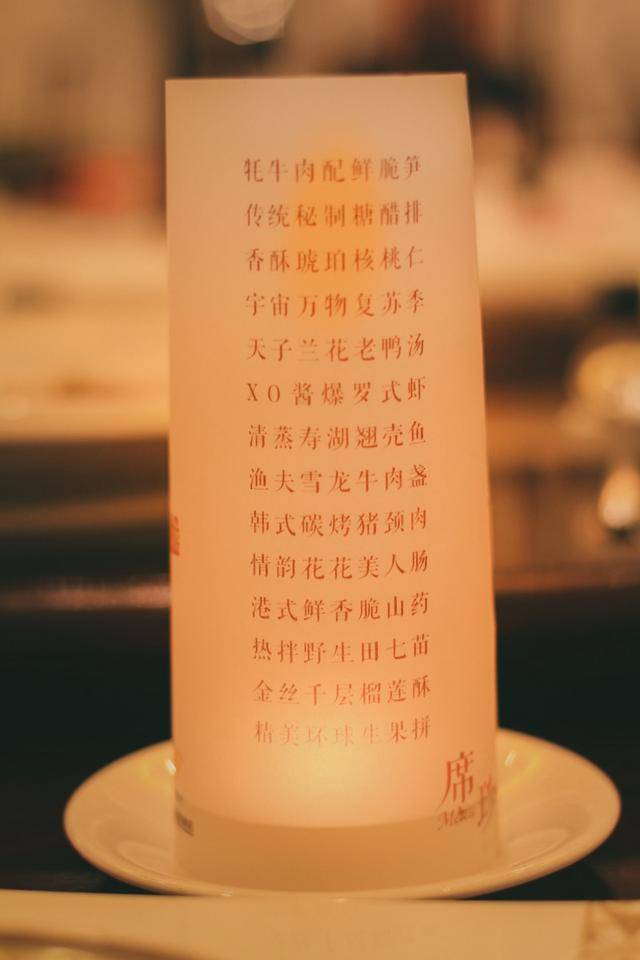 牦牛肉配鲜脆笋
传统秘制糖醋排
香酥琥珀核桃仁
宇宙万物复苏季
天子兰花老鸭汤
XO酱爆罗式虾
清蒸寿湖翘壳鱼
渔夫雪龙牛肉盏
韩式碳烤猪颈肉
情韵花花美人肠
港式鲜香脆山药
热拌野生田七苗
金丝千层榴莲酥
精美环球生果拼
席
Menu